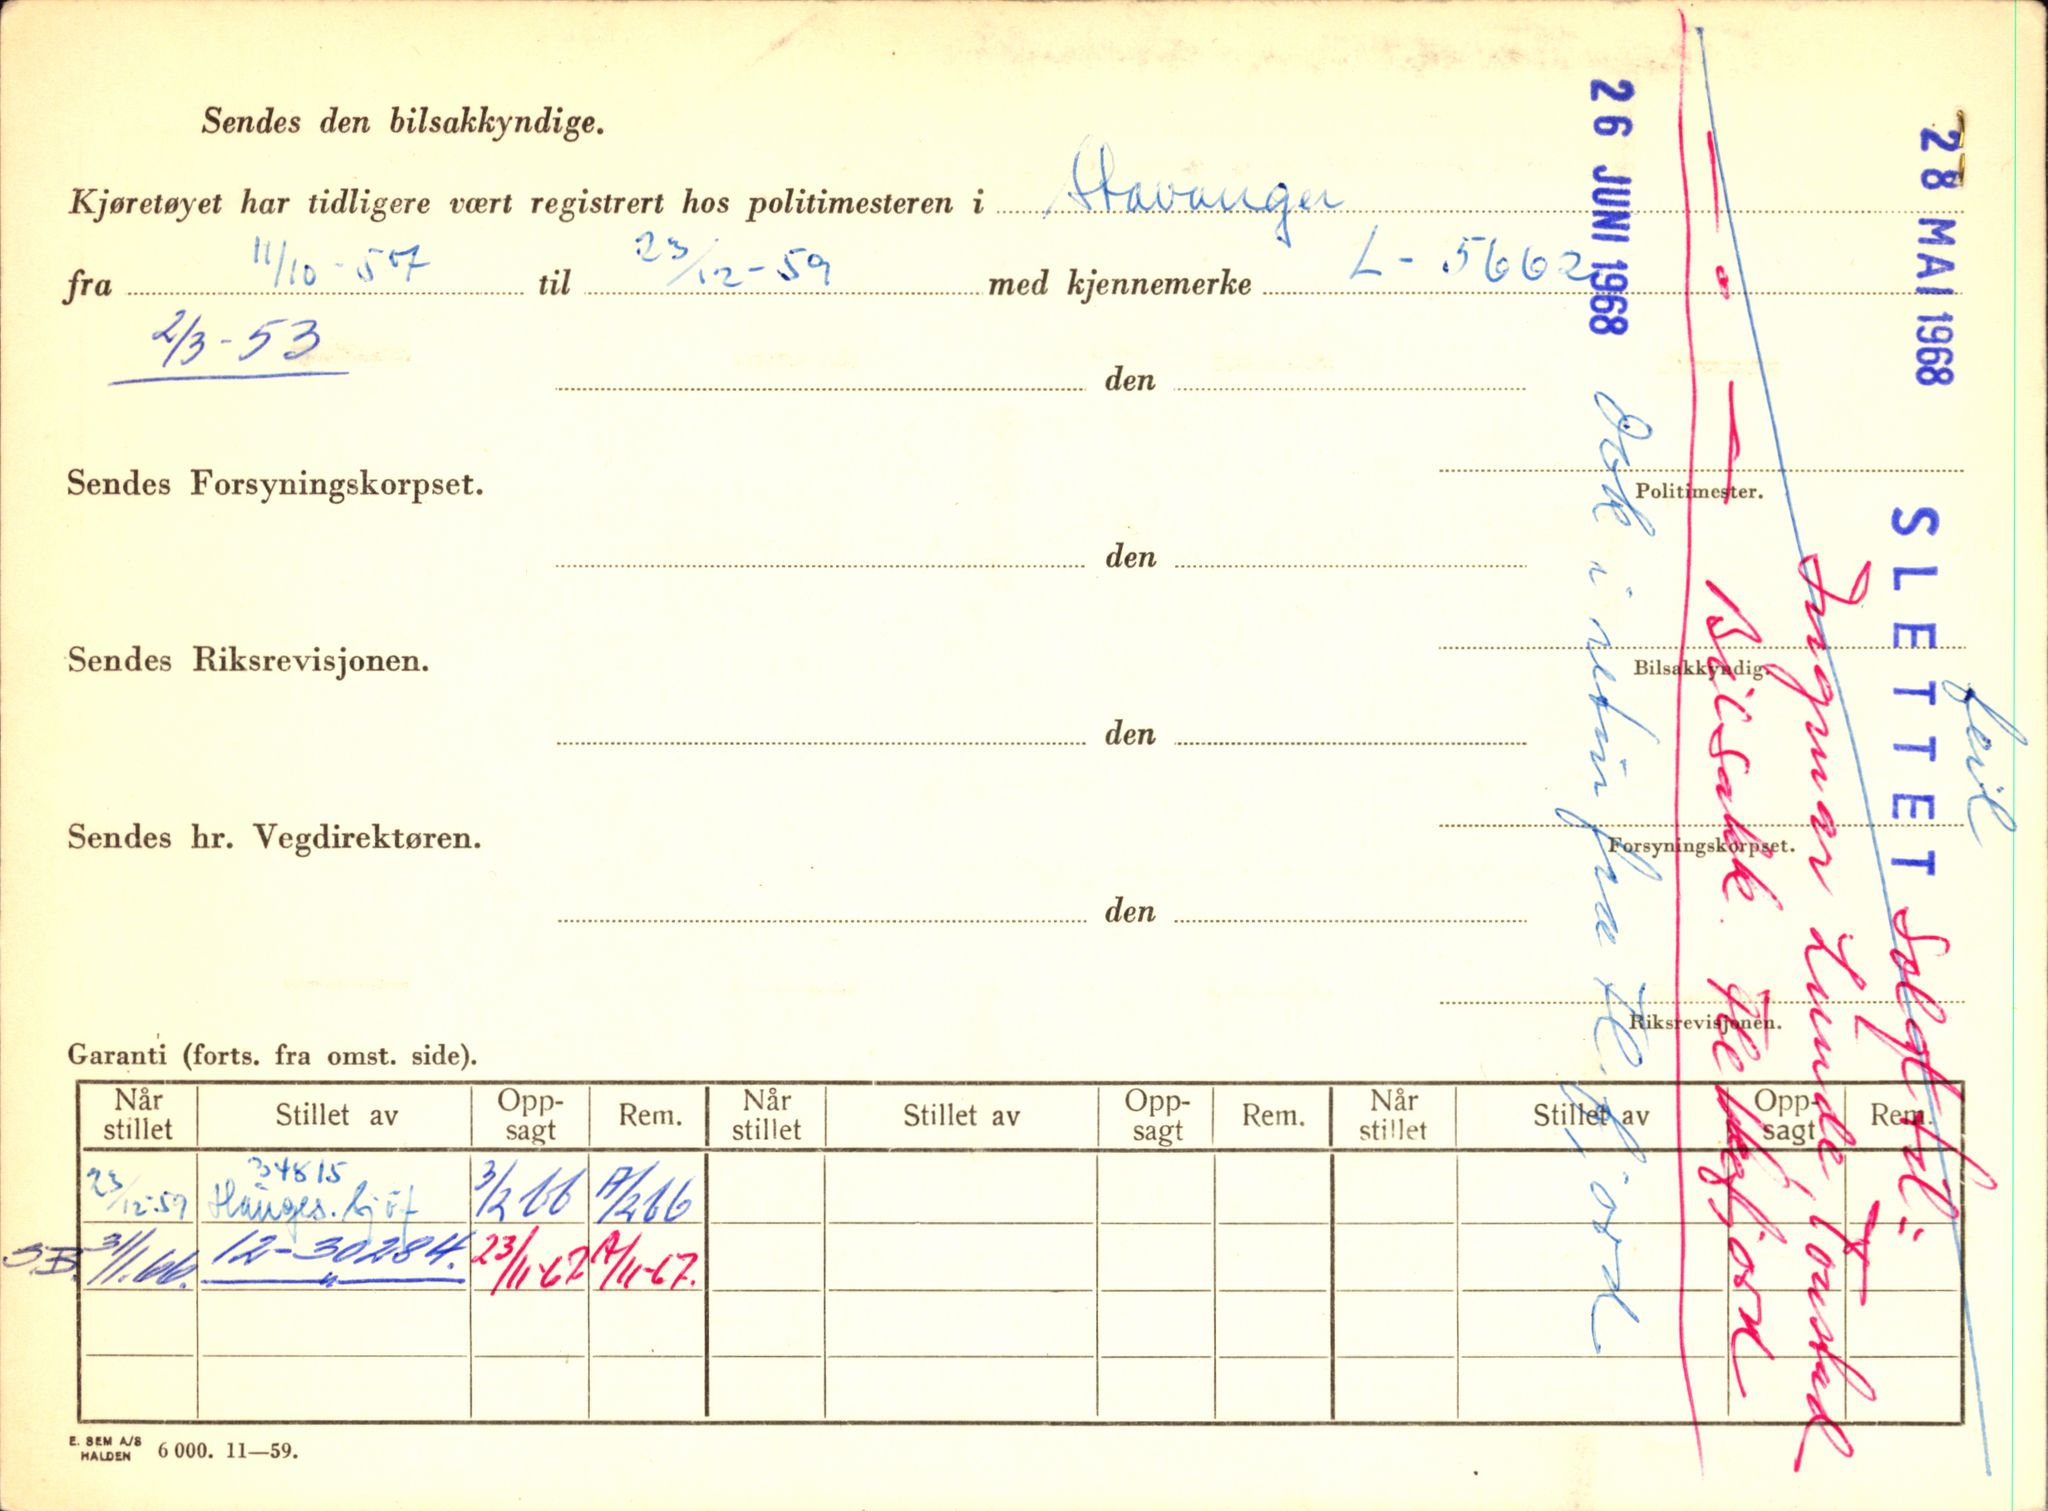 Sendes den bilsakkyndige.
Kjøretøyet har tidligere vært registrert hos politimesteren i Stavanger
fra 11/10-57 til 23/12-59 med kjennemerke L-5662
2/3-53
den
Politimester.
Sendes Forsyningskorpset.
den
Bilsakkyndig.
Sendes Riksrevisjonen.
den
Forsyningskorpset.
Sendes hr. Vegdirektøren.
den
Riksrevisjonen.
Garanti (forts. fra omst. side).
Når stillet Stillet av Opp-sagt Rem. Når stillet Stillet av Opp-sagt Rem. Når stillet Stillet av Opp-sagt Rem.
34815
23/12-59 Hauges. Sjøf 3/2 66 A/2 66
S.B. 31/1.66. 12-30284. 23/11-67 A/11-67.
E. SEM A/S
HALDEN 6 000. 11—59.
28 MAI 1968 SLETTET Solgt til:
feil
Ingmar Lunde, Tonstad
Bilsakk. Flekkefjord
26 JUNI 1968
i retur fra Fl.fjord